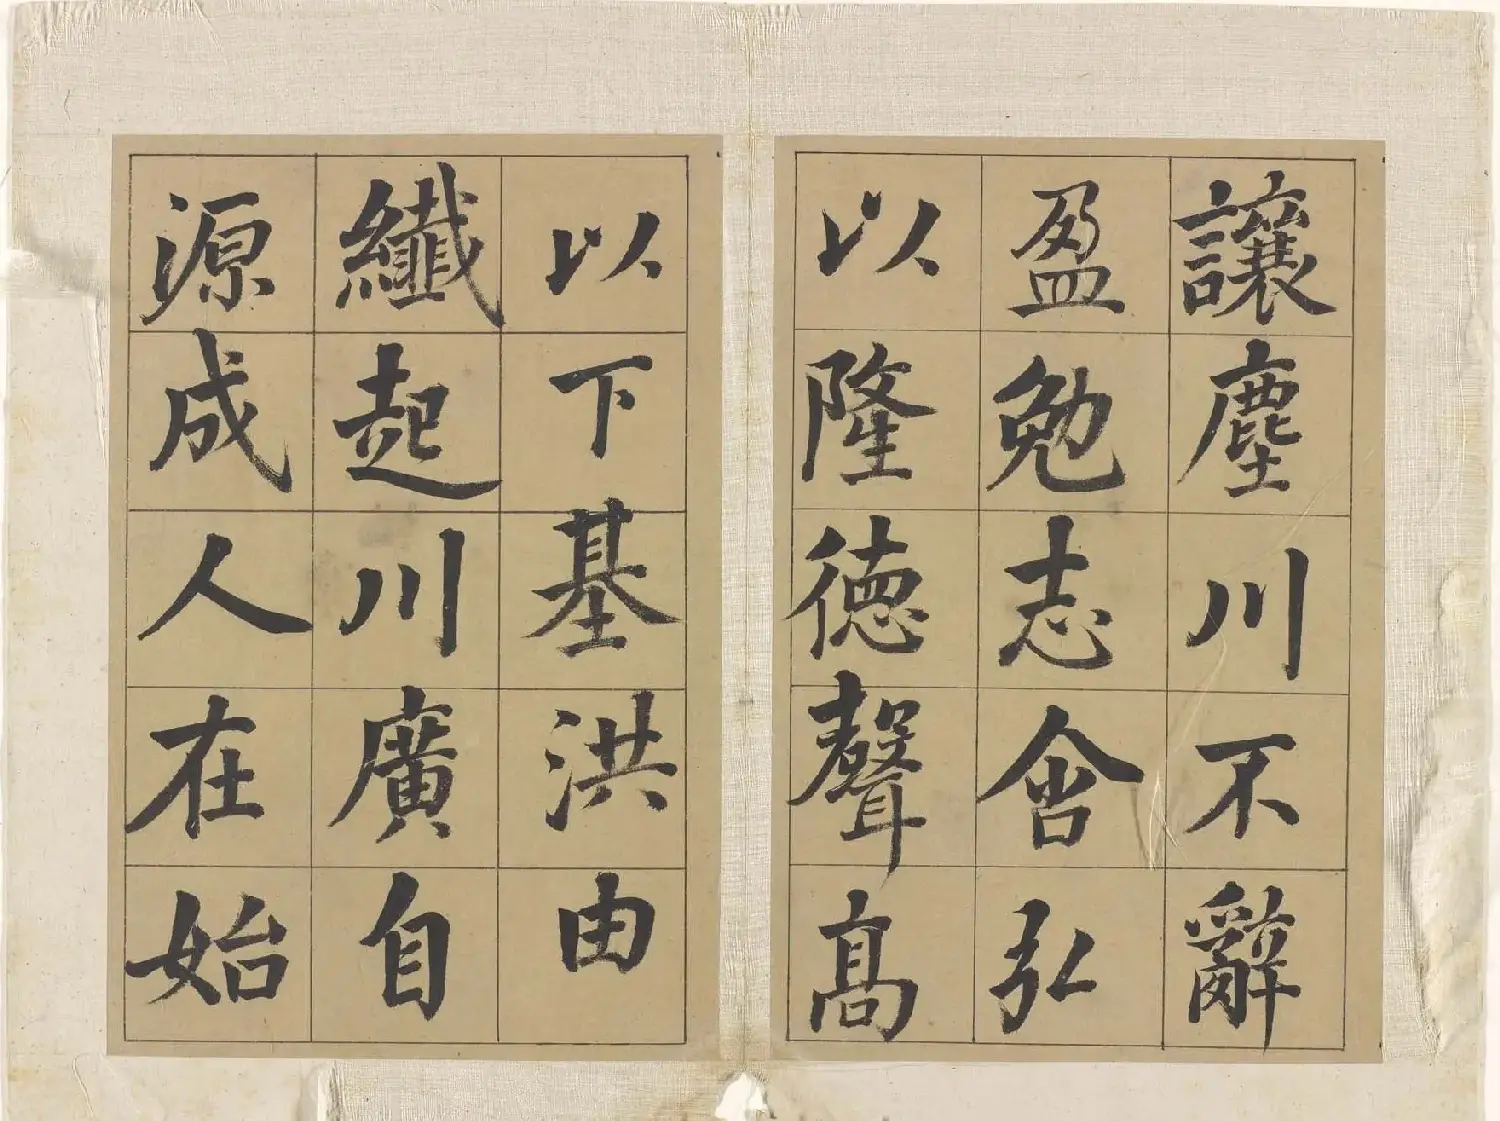 讓塵川不辭
盈勉志含弘
以隆徳聲髙
以下基洪由
纖起川廣自
源成人在始